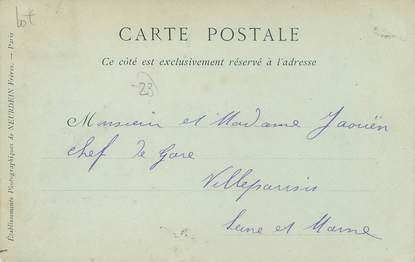 Lot
CARTE POSTALE
Ce côté est exclusivement réservé à l'adresse
23
Monsieur et Madame Jaouën
chef de Gare
Villeparisis
Seine et Marne
Etablissements Photographiques de NEURDEIN Frères. — Paris